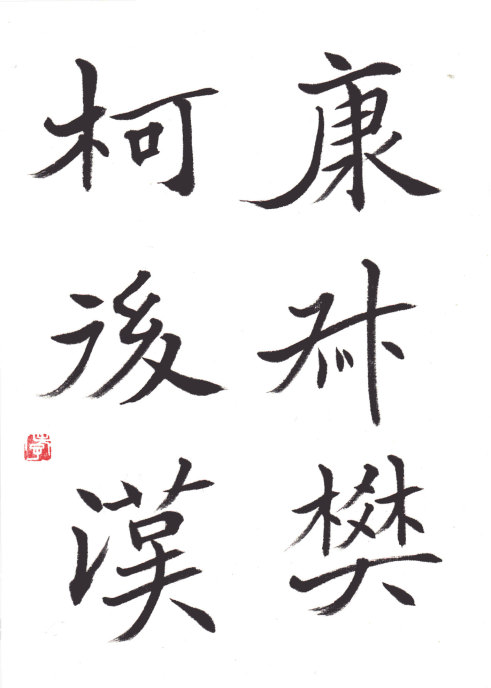 康樊
柯後漢